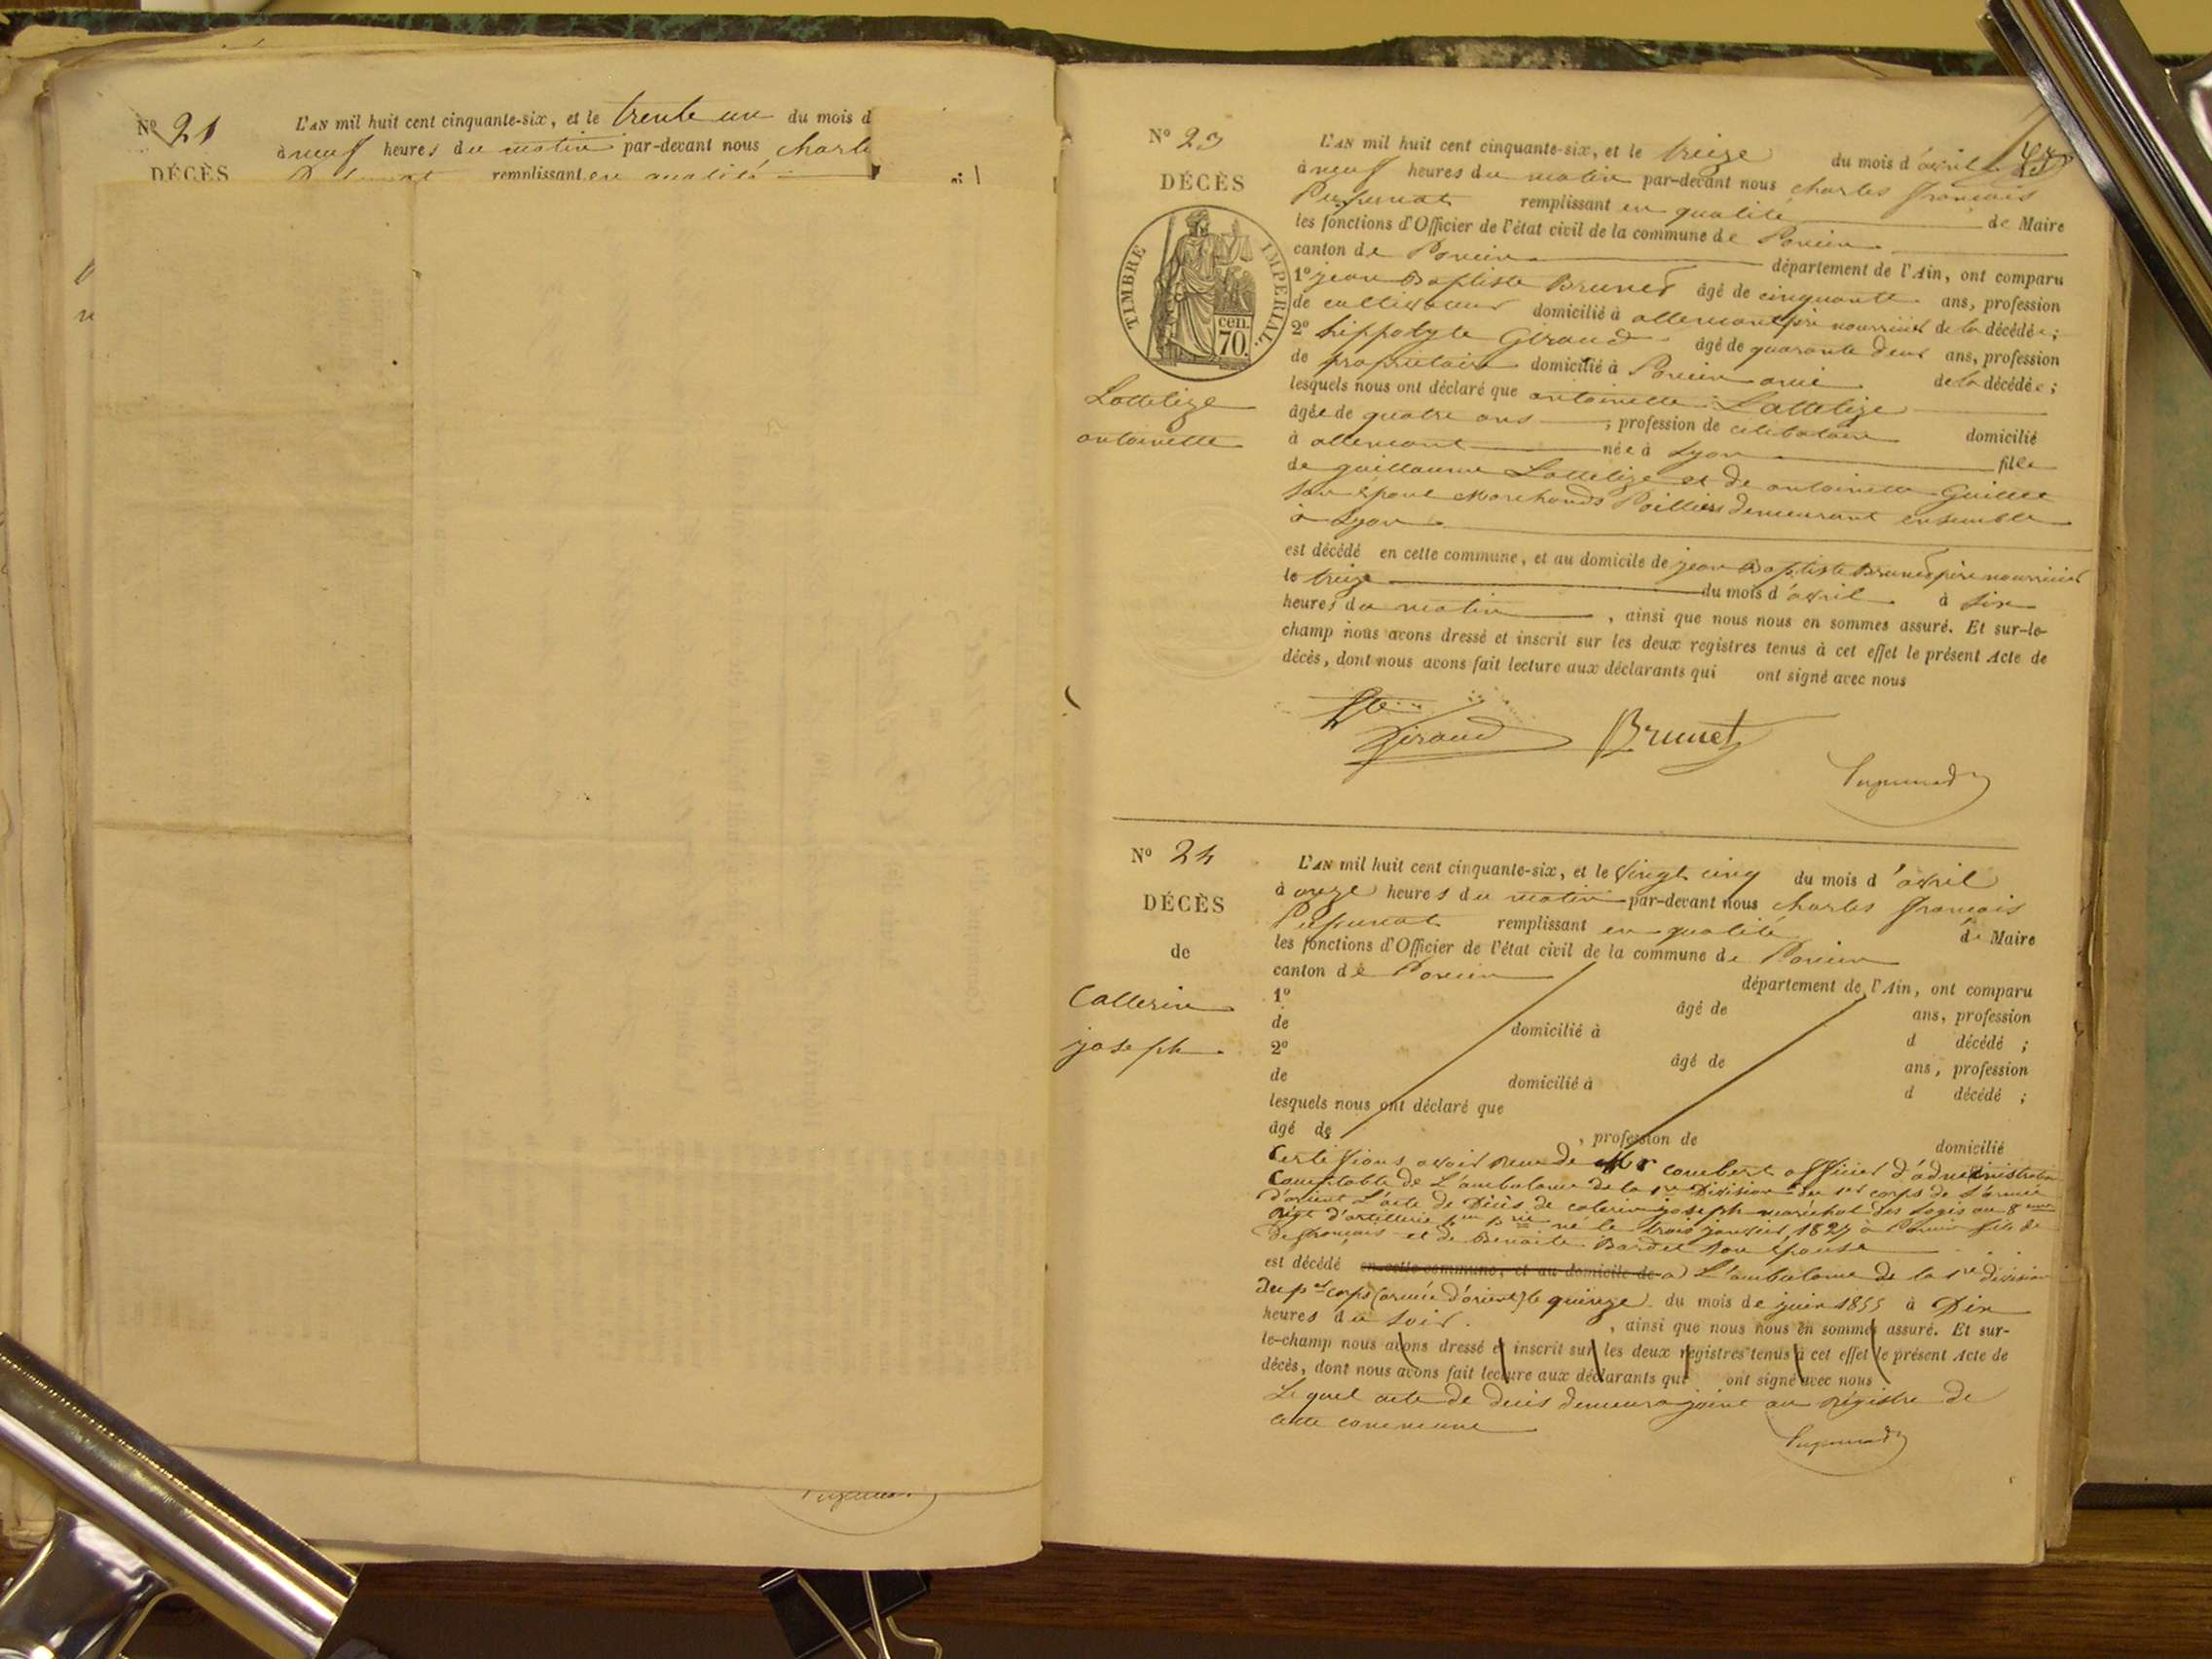 Nº 21
L'AN mil huit cent cinquante-six, et le trente un du mois d
à neuf heures du matin par-devant nous Charle
DÉCÈS
remplissant en qualité
Nº 23
L'AN mil huit cent cinquante-six, et le treize du mois d'avril
à neuf heures du matin par-devant nous charles françois
DÉCÈS
remplissant en qualité de Maire
les fonctions d'Officier de l'état civil de la commune de Poncin
canton de Poncin département de l'Ain, ont comparu
TIMBRE IMPÉRIAL.
cen. 70.
1º jean Baptiste Brunet âgé de cinquante ans, profession
de cultivateur domicilié à allement père nourricier de la décédée ;
2º hippolyte Giraud âgé de quarante deux ans, profession
de propriétaire domicilié à Poncin ami de la décédée ;
lesquels nous ont déclaré que antoinette Lattelize
Lattelize
antoinette
âgée de quatre ans ; profession de celibataire domicilié
à allement née à Lyon fille
de guillaume Lattelize et de antoinette
son épouse Marchands demeurant ensemble
à Lyon
est décédé en cette commune, et au domicile de jean Baptiste Brunet père nourricier
le treize du mois d'avril à six
heures du matin , ainsi que nous nous en sommes assuré. Et sur-le-
champ nous avons dressé et inscrit sur les deux registres tenus à cet effet le présent Acte de
décès, dont nous avons fait lecture aux déclarants qui ont signé avec nous
Giraud Brunet
Nº 24
L'AN mil huit cent cinquante-six, et le vingt cinq du mois d'avril
à onze heures du matin par-devant nous charles françois
DÉCÈS
remplissant en qualité de Maire
les fonctions d'Officier de l'état civil de la commune de Poncin
de
canton de Poncin département de l'Ain, ont comparu
Catterin
joseph
1º âgé de ans, profession
de domicilié à d décédé ;
2º âgé de ans, profession
de domicilié à d décédé ;
lesquels nous ont déclaré que
âgé de , profession de domicilié
Certifions avoir reçu de Mr combert officier d'administration
Comptable de L'ambulance de la 1re Division du 1er corps de l'armée
d'orient L'acte de Décès de caterin joseph maréchal des logis au 8eme
régt d'artillerie né le trois janvier 1827 à Poncin fils de
de françois et de Benoite Bardet son épouse
est décédé en cette commune, et au domicile de à L'ambulance de la 1re division
du per corps (armée d'orient) le quinze du mois de juin 1855 à Dix
heures du soir , ainsi que nous nous en sommes assuré. Et sur-
le-champ nous avons dressé et inscrit sur les deux registres tenus à cet effet le présent Acte de
décès, dont nous avons fait lecture aux déclarants qui ont signé avec nous
Le quel acte de décès demeura joint au régistre de
cette commune